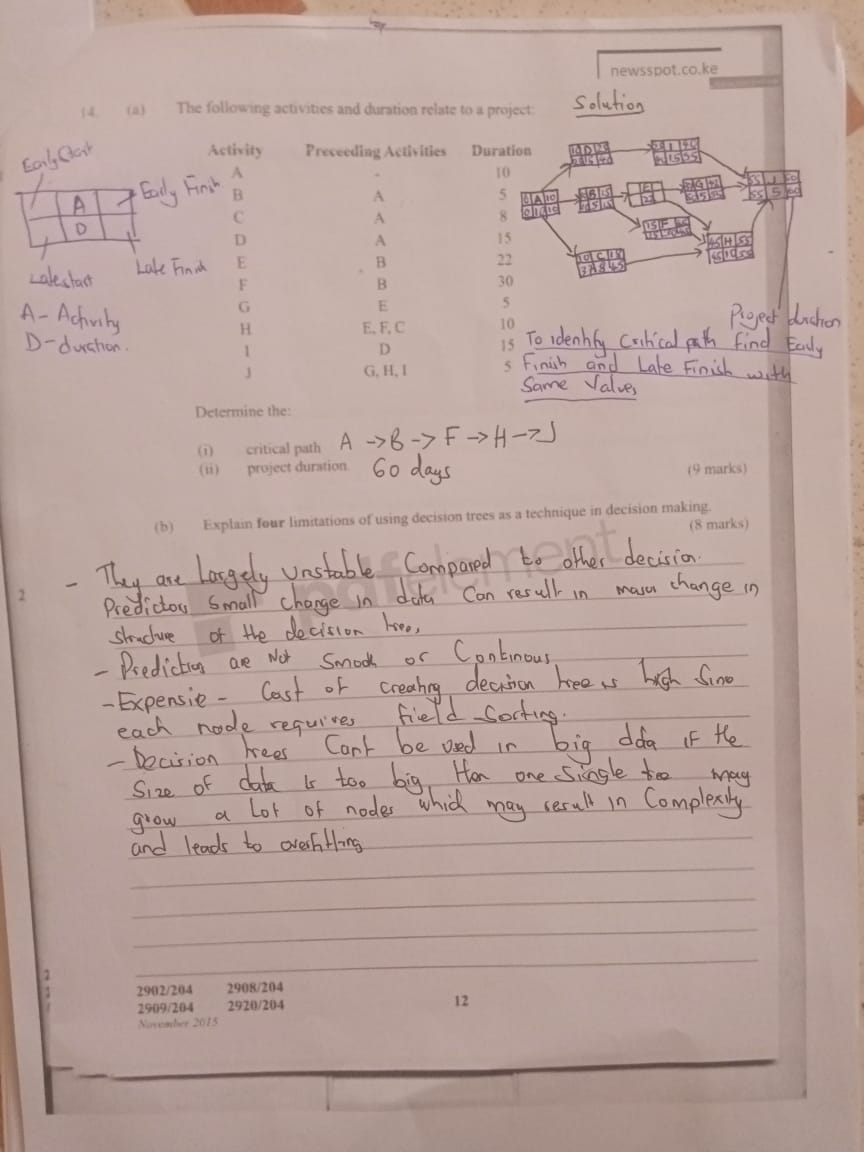 newsspot.co.ke
14. (a) The following activities and duration relate to a project:
Solution
Early Start
Early Finish
A
D
Late start
Late Finish
A - Activity
D - duration.
Activity Preceeding Activities Duration
A - 10
B A 5
C A 8
D A 15
E B 22
F B 30
G E 5
H E, F, C 10
I D 15
J G, H, I 5
Project duration
To identify Critical path find Early
Finish and Late Finish with
Same Values
Determine the:
(i) critical path A -> B -> F -> H -> J
(ii) project duration. 60 days (9 marks)
(b) Explain four limitations of using decision trees as a technique in decision making.
(8 marks)
pdfelement
2
- They are Largely Unstable Compared to other decision.
Predictors Small change in data Can result in change in
structure of the decision tree,
- Predictions are Not Smooth or Continous
- Expensie - Cost of creating decision tree is high Since
each node requires field Sorting.
- Decision trees Cant be used in big data if the
Size of data is too big then one Single tree may
grow a Lot of nodes which may result in Complexity
and leads to overfitting
2902/204 2908/204
2909/204 2920/204
November 2015
12